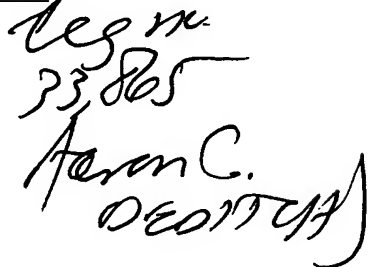 Reg no.
33,865
Aaron C.
DEDITCH)